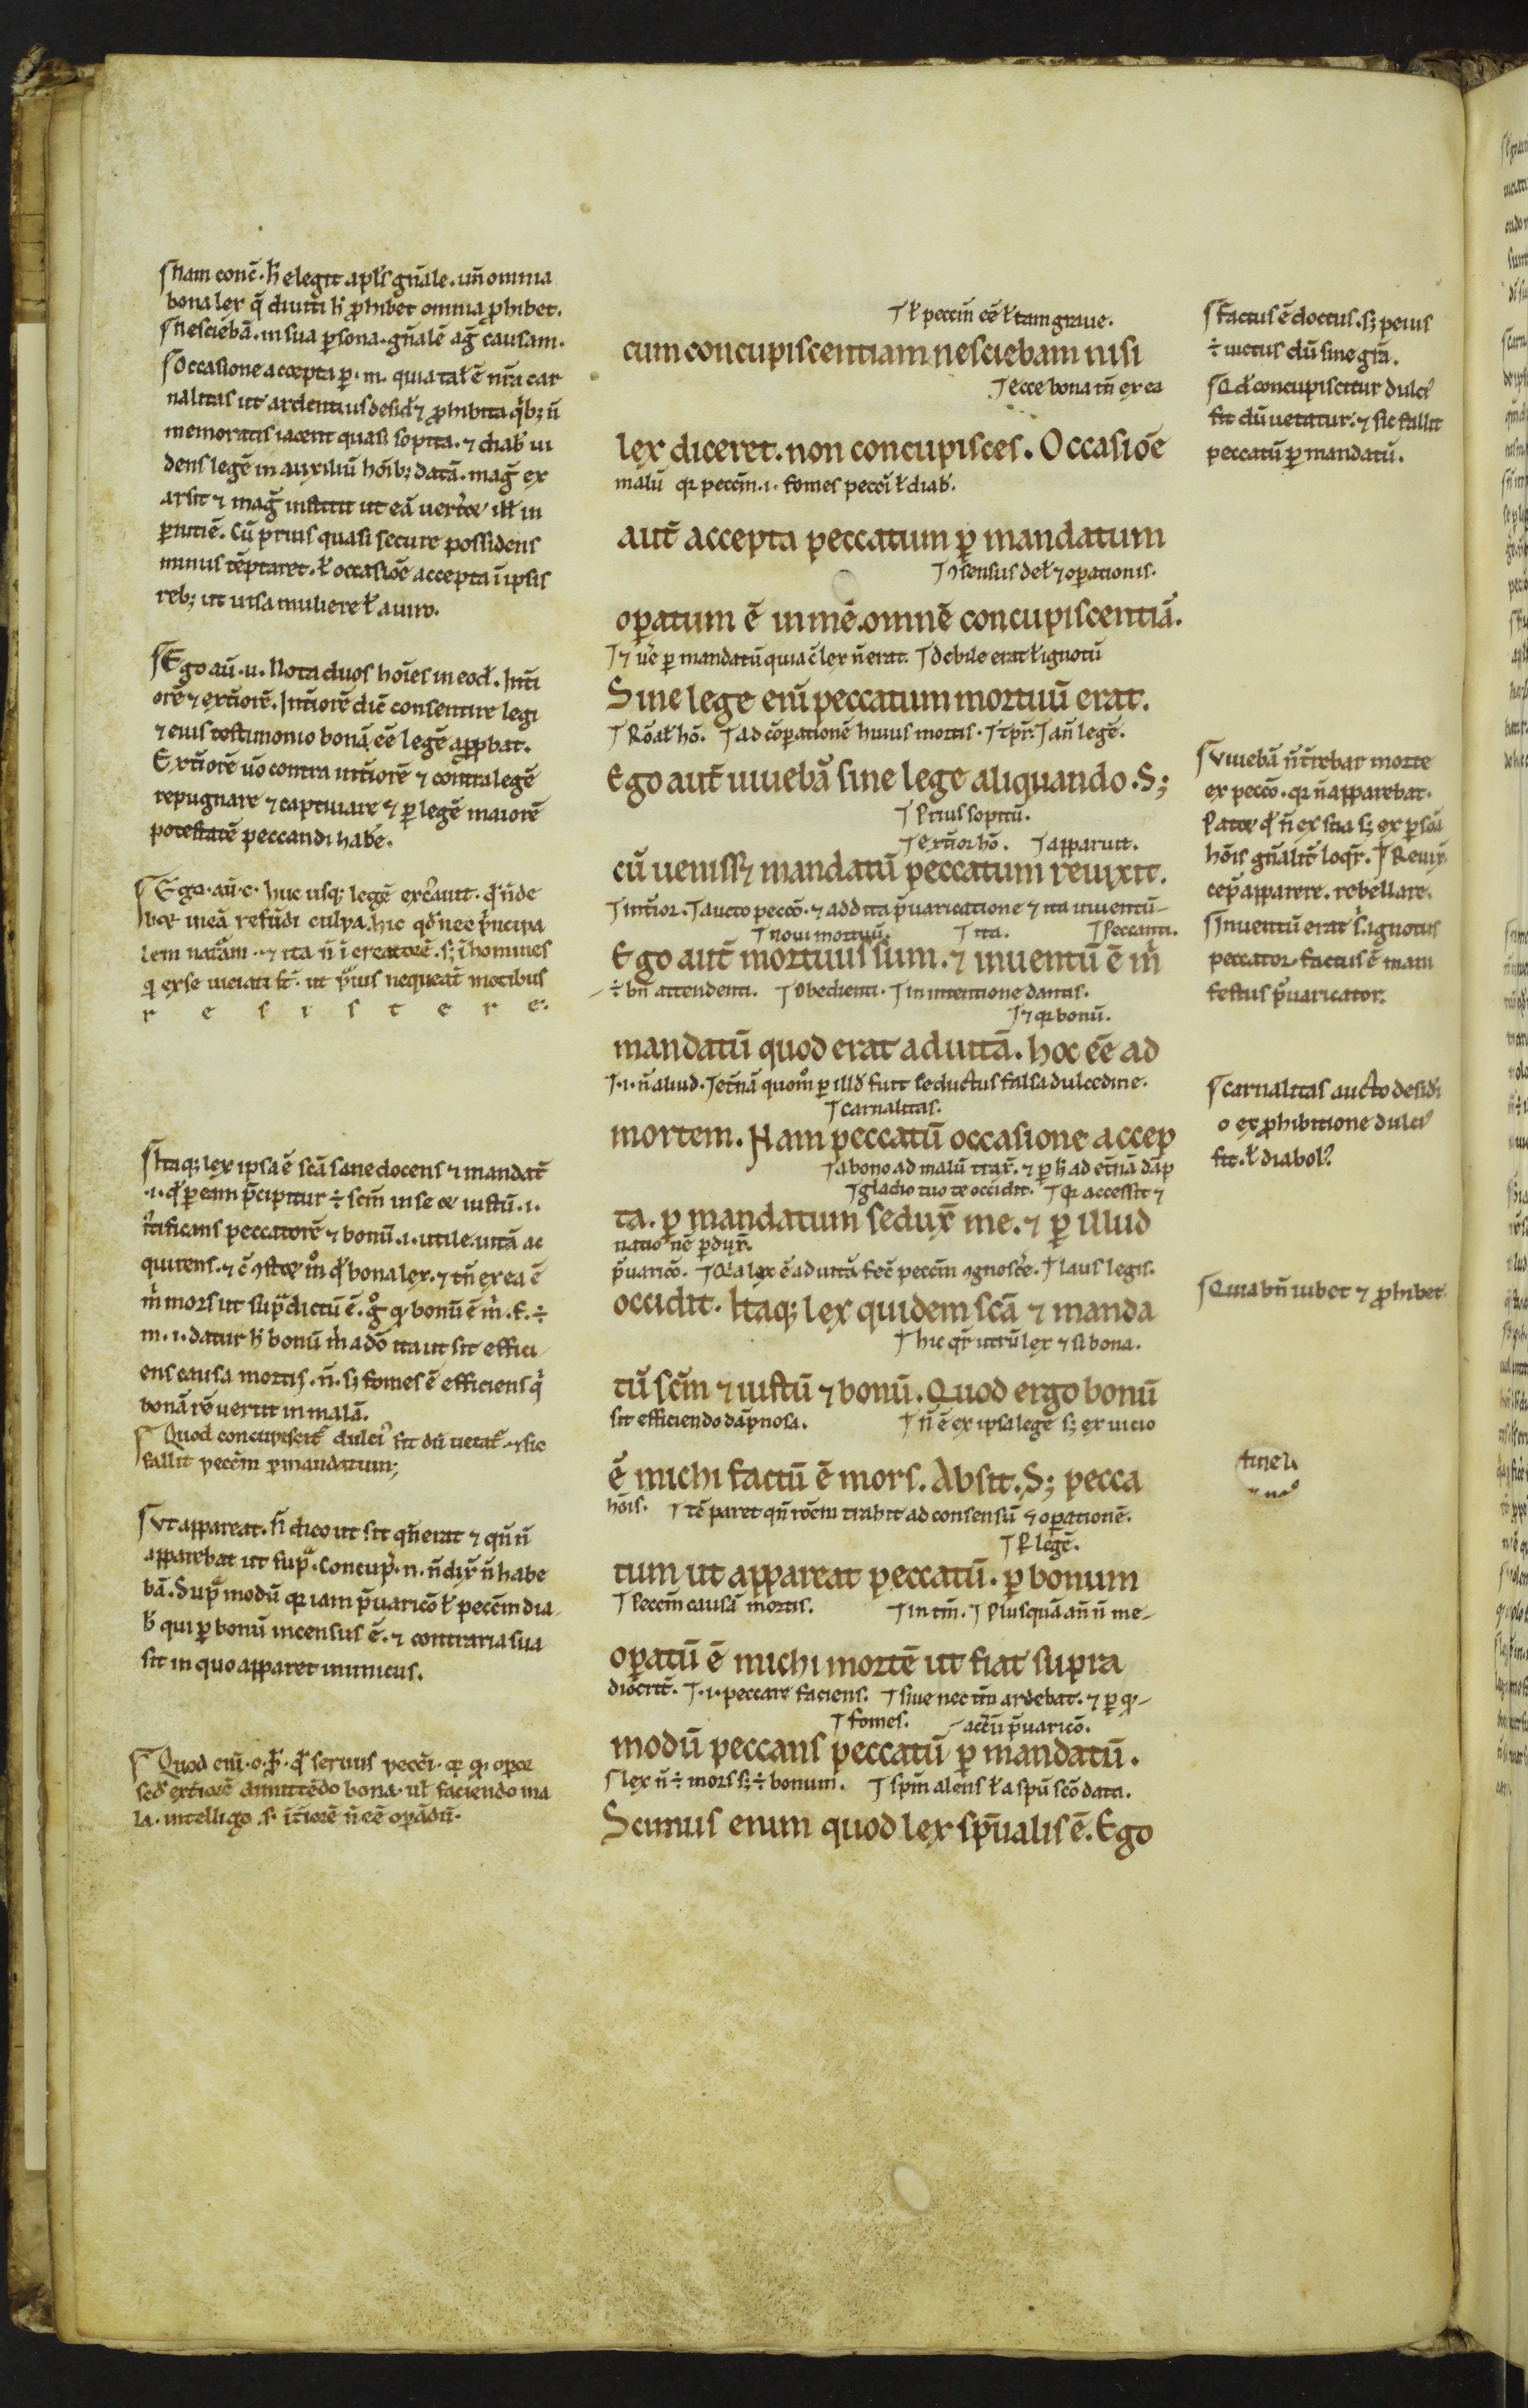 Nam conc̄. h̄ elegit apl's gn̄ale. un̄ omnia
bona lex q̄ dum h̄ p̄hibet omnia p̄hibet.
Nesciebā. in sua p̱sona. gn̄alē aḡ causam.
Occasione accepta p̱. m. quia tal' ē nr̄a car
nalitas ut ardentius desid' ⁊ p̄hibita qⁱb; n̄
memoratis iacent quasi sopita. ⁊ diab' ui
dens legē in auxiliū hōib; datā. maḡ ex
arsit ⁊ maḡ institit ut eā uert'et ill' in
p̱nitiē. Cū prius quasi secure possidens
minus tēptaret. ł occasiōe accepta ī ipsis
reb; ut uisa muliere ł auro.
Ego aū. u. Nota duos hōies in eod'. Int̄i
orē ⁊ ext̄iorē. Int̄iorē dic̄ consentire legi
⁊ eius testimonio bonā ēē legē app̱bat.
Ext̄iorē ūo contra int̄iorē ⁊ contra legē
repugnare ⁊ captiuare ⁊ p̱ legē maiorē
potestatē peccandi habe'.
Ego. aū. c. huc usq; legē exc'auit. q' n̄ de
bet in eā refūdi culpa. hic qd' nec p'ncipa
lem natāam. ⁊ ita n̄ ī creatorē. s; ī homines
q' ex se uiciati st̄. ut p'us nequeat̄ motibus
r e s i s t e r e.
Itaq; lex ipsa ē scā sane docens ⁊ mandat̄
.i. q' p̱ eam p̄cipitur ÷ scm̄ in se et iustū .i.
iustificans peccatorē ⁊ bonū .i. utile. uitā ac
quirens. ⁊ c̄ ꝯstet m° q' bona lex. ⁊ tn̄ ex ea ē
m' mors ut supᵃdictū ē. g° q' bonū ē m'. f. ÷
m. i. datur h̄ bonū m' adō ita ut sit effici
ens causa mortis. n̄. s; fomes ē efficiens qⁱ
bonā rē uertit in malā.
Quod concupiscit' dulci' fit dū uetat'. ⁊ sic
fallit peccm̄ p̱ mandatum;
Vt appareat. h̄ dico ut sit qn̄ erat ⁊ qn̄ n̄
apparebat ut supᵃ. Concup'. n. n̄ dix' n̄ habe
bā. Supᵃ modū q̄ iam p̄uaricō ł peccm̄ dia
b' qui p̱ bonū incensus ē. ⁊ contraria sua
sit in quo apparet inimicus.
Quod enī. o. p̱. q' seruus pecci. q̄ q' opor
sed' ext̄iorē dimittēdo bona. ul' faciendo ma
la. intelligo. s. īt̄iorē n̄ ēē opādū.
ł peccm̄ ēē ł tam graue.
cum concupiscentiam nesciebam nisi
Ecce bona tn̄ ex ea
lex diceret. non concupisces. Occasiōe
malū q̄ peccm̄ .i. fomes pecci ł diab'.
aut̄ accepta peccatum p̱ mandatum
ꝯsensus del' ⁊ op̱ationis.
op̱atum ē in mē. omnē concupiscentiā.
⁊ ue' p̱ mandatū quia c̄ lex n̄ erat. debile erat ł ignotū
Sine lege enī peccatum mortuū erat.
Rōal' hō. ad cōp̱ationē huius mortis. an̄ legē.
Ego aut̄ uiuebā sine lege aliquando. S;
Prius sopitū.
ext̄ior hō. apparuit.
cū uenisset mandatū peccatum reuixit.
int̄ior. aucto peccō. ⁊ addita p̄uaricatione ⁊ ita inuentū
noui mortuū. ita. Peccanti.
Ego aut̄ mortuus sum. ⁊ inuentū ē m'
÷ bn̄ attendenti. Obedienti. in intentione dantis.
⁊ q̄ bonū.
mandatū quod erat ad uitā. hoc ēē ad
.i. n̄ aliud. et̄nā quom° p̱ illd' fuit seductus falsa dulcedine.
carnalitas.
mortem. Nam peccatū occasione accep
a bono ad malū trax̄. ⁊ p̱ h̄ ad et̄nā dāp
gladio tuo te occidit. q̄ accessit ⁊
ta. p̱ mandatum sedux̄ me. ⁊ p̱ illud
natio nē p̱dux̄.
p̄uaricō. Qᵃ lex ē ad uitā fec̄ peccm̄ ꝯgnosc'e. laus legis.
occidit. Itaq; lex quidem scā ⁊ manda
hic qr̄ utrū lex ⁊ si bona.
tū scm̄ ⁊ iustū ⁊ bonū. Quod ergo bonū
sit efficiendo dāpnosa. n̄ ē ex ipsa lege s; ex uicio
ē michi factū ē mors. Absit. S; pecca
hōis. tē paret qn̄ rōem trahit ad consensū ⁊ op̱ationē.
P̱ legē.
tum ut appareat peccatū. p̱ bonum
Peccm̄ causā mortis. in tm̄. Plusquā an̄ n̄ me
op̱atū ē michi mortē ut fiat supra
diocrit̄. .i. peccare faciens. siue nec tm̄ ardebat. ⁊ p̱ q'
fomes. actū p̄uaricō.
modū peccans peccatū p̱ mandatū.
lex n̄ ÷ mors s; ÷ bonum. spm̄ alens ł a spū scō data.
Scimus enim quod lex sp̄ualis ē. Ego
factus ē doctus. s; peius
÷ uictus dū sine gr̄a.
Qd' concupiscitur dulci'
fit dū uetatur. ⁊ sic fallit
peccatū p̱ mandatū.
Viuebā n̄ t̄rebar morte
ex peccō. q̄ n̄ apparebat.
Patet q' n̄ ex sua s; ex p̱sōa
hōis gn̄alit̄ loqr̄. Reuix̄.
cep̄ apparere. rebellare.
Inuentū erat s. ignotus
peccator. factus ē mani
festus p̄uaricator.
carnalitas aucto desid'i
o ex p̱hibitione dulci'
fit. ł diabol'.
Quia bn̄ iubet ⁊ p̱hibet